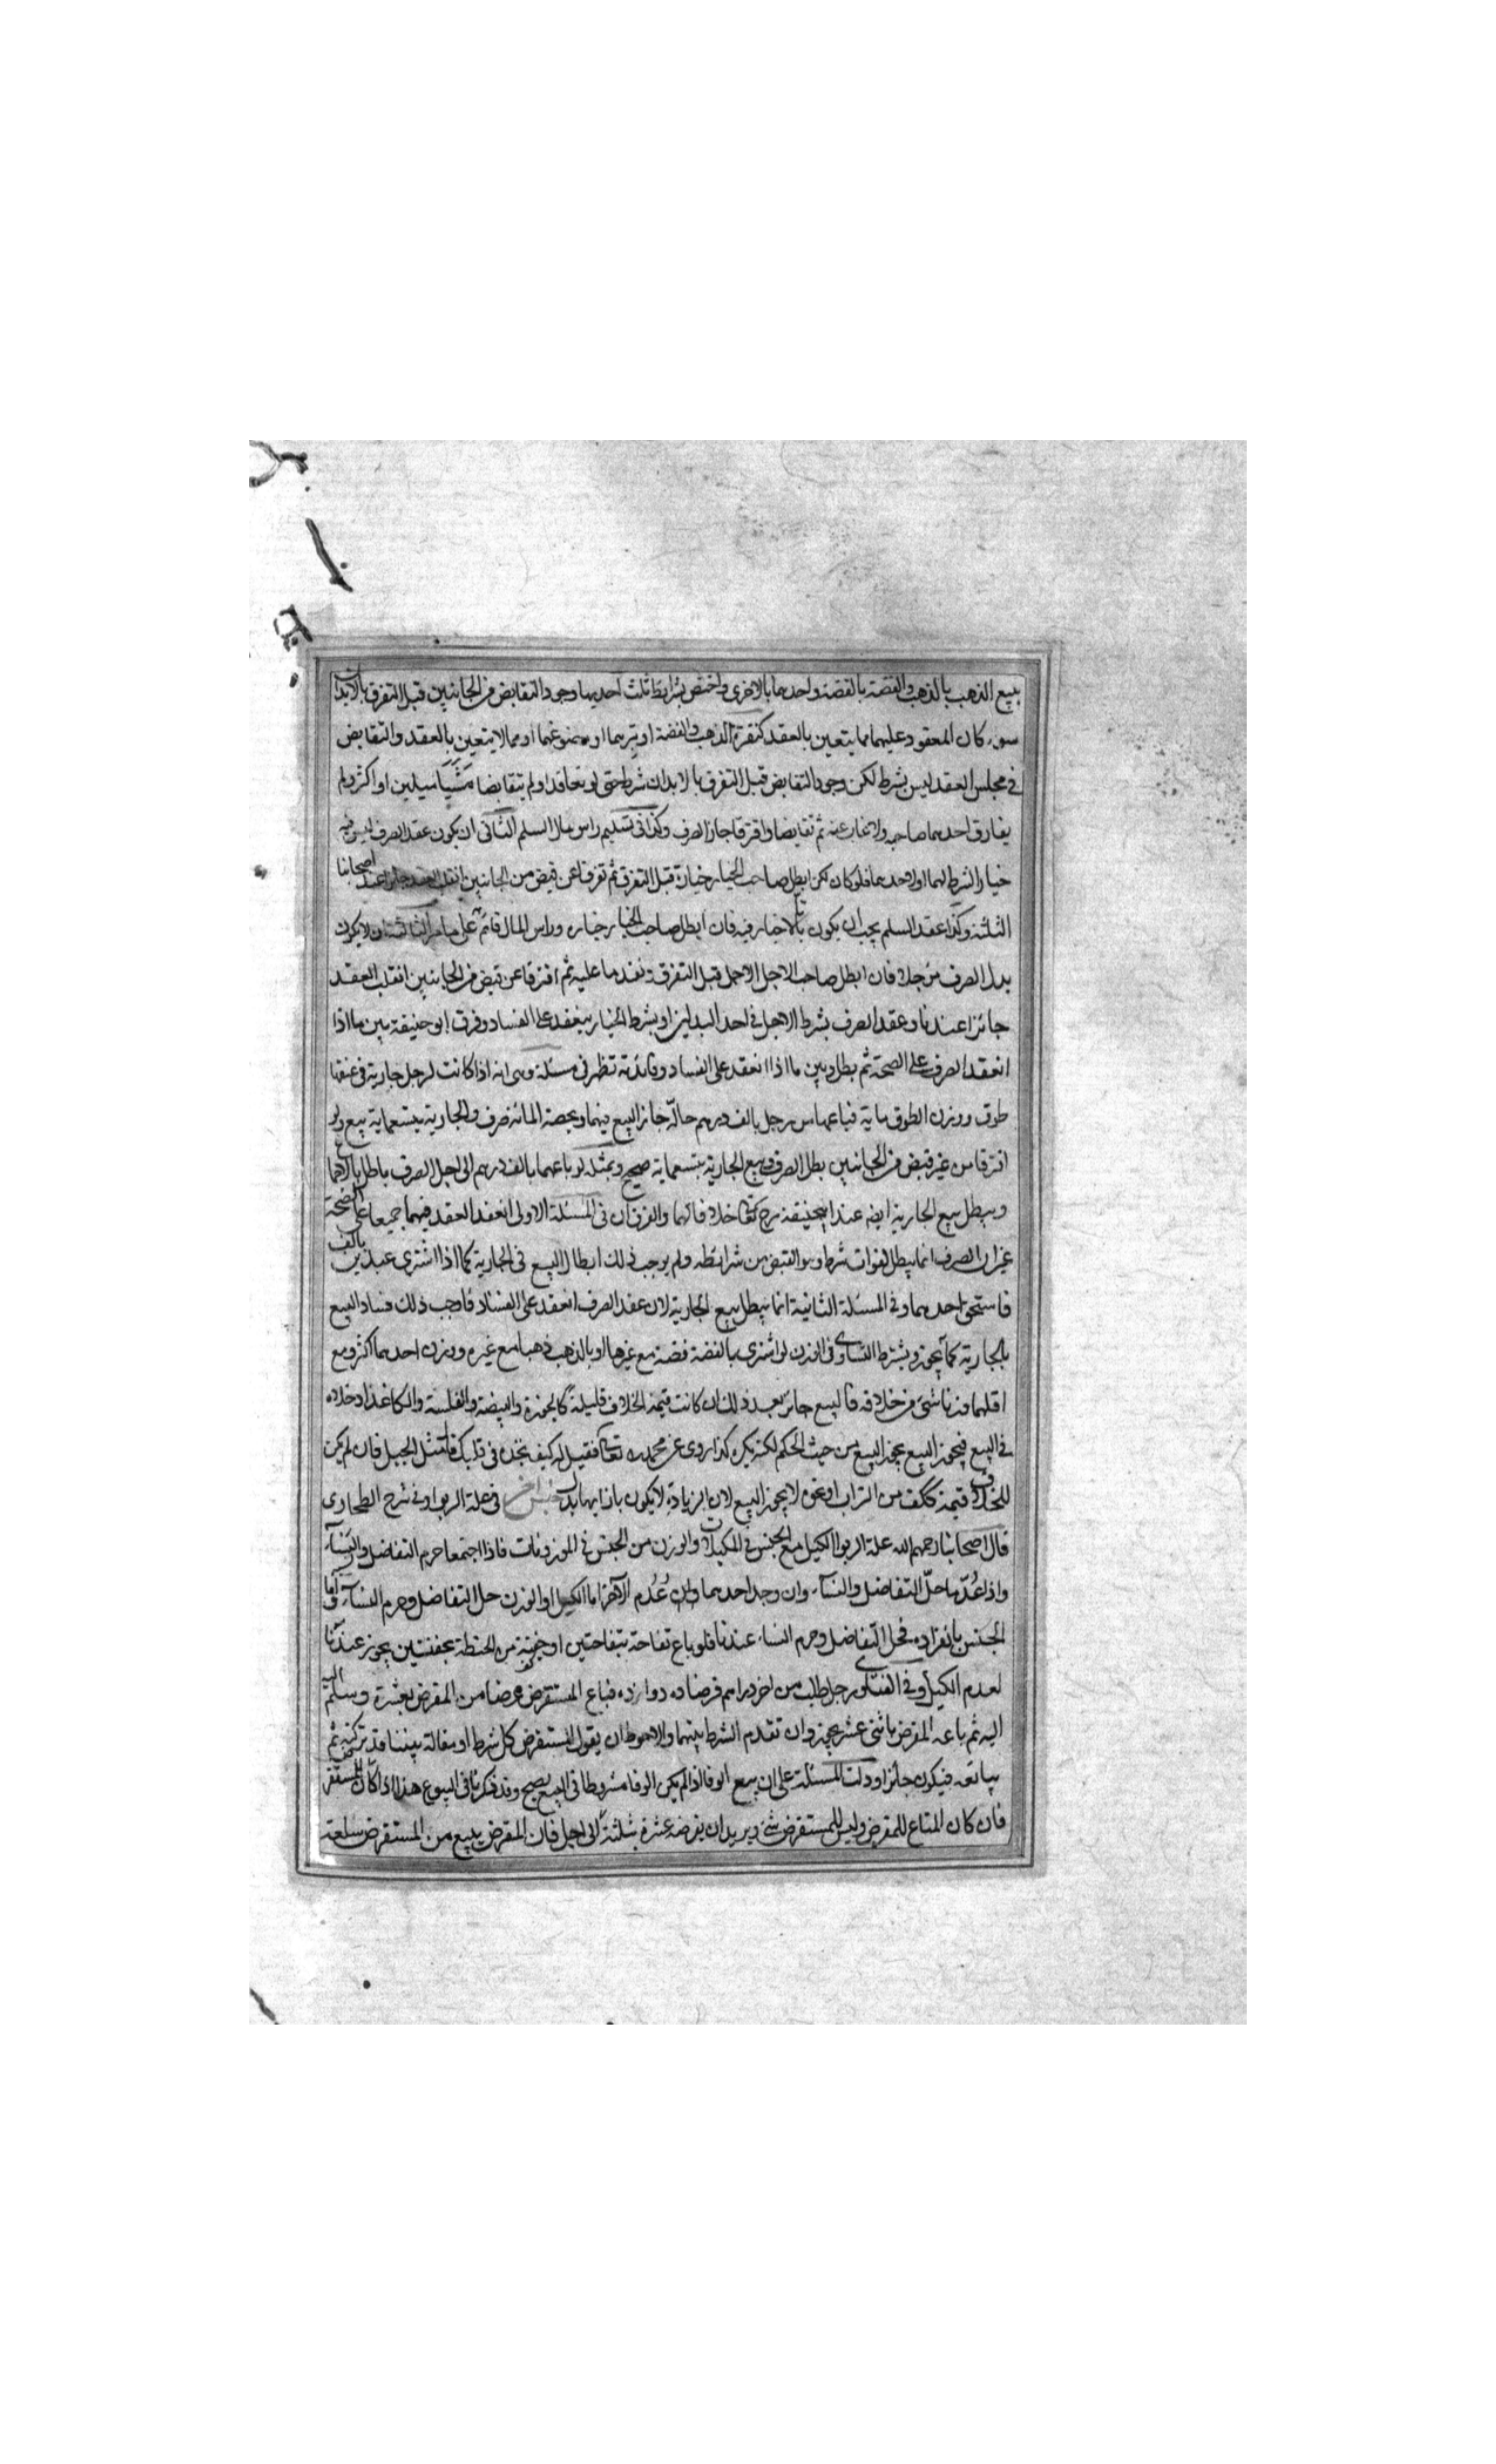 بيع الذهب بالذهب والفضة بالفضة واحدهما بالاخرى واختص بشرايط ثلث احديها وجود التقابض من الجانبين قبل التفرق بالابدان
سوء كان المعقود عليهما مما يتعين بالعقد كنقرة الذهب والفضة او تبرهما او مصنوعهما او مما لا يتعين بالعقد والتقابض
في مجلس العقد ليس بشرط لكن وجود التقابض قبل التفرق بالابدان شرط حتى لو تعاقدا ولم يتقابضا مشيا ميلين او اكثر ولم
يفارق احدهما صاحبه ولا غاب عنه ثم تقابضا وافترقا جاز الصرف وكذا في تسليم راس مال السلم الثاني ان يكون عقد الصرف ليس فيه
خيار الشرط لهما او لاحدهما فلو كان لكن ابطل صاحب الخيار خياره قبل التفرق ثم تفرقا عن قبض من الجانبين انقلب العقد جائزا عند اصحابنا
الثلثة وكذا عقد السلم يجب ان يكون باتا لا خيار فيه فان ابطل صاحب الخيار خياره وراس المال قائم على الثالث ان لا يكون
بدل الصرف مؤجلا فان ابطل صاحب الاجل الاجل قبل التفرق ونقد ما عليه ثم افترقا عن قبض من الجانبين انقلب العقد
جائزا عندنا وعقد الصرف بشرط الاجل في احد البدلين او بشرط الخيار ينعقد على الفساد وفرق ابو حنيفة بين ما اذا
انعقد الصرف على الصحة ثم بطل وبين ما اذا انعقد على الفساد وفائدته تظهر في مسئلة وهى انه اذا كانت لرجل جارية في عنقها
طوق ووزن الطوق ماية فباعهما من رجل بالف درهم حالّة جاز البيع فيهما وبحصة المائة صرف والجارية بتسعماية بيع ولو
افترقا من غير قبض من الجانبين بطل الصرف وبيع الجارية بتسعماية صحيح وبمثله لو باعهما بالف درهم الى اجل الصرف باطل بالاجماع
ويبطل بيع الجارية ايضا عند ابيحنيفة رح تعا خلافا لهما والفرق ان في المسئلة الاولى انعقد العقد فيهما جميعا على الصحة
غير ان الصرف انما يبطل لفوات شرط وهو القبض من شرائطه ولم يوجب ذلك ابطال البيع في الجارية كما اذا اشترى عبدين بالف
فاستحق احدهما وفي المسئلة الثانية انما يبطل بيع الجارية لان عقد الصرف انعقد على الفساد فاوجب ذلك فساد البيع
بالجارية كما يجوز وبشرط التساوى في الوزن لو اشترى بالفضة فضة مع غيرها او بالذهب ذهبا مع غيره ووزن احدهما اكثر ومع
اقلهما وزنا شئ من خلافه فالبيع جائز بعد ذلك ان كانت قيمة الخلاف قليلة كالجوزة والبيضة والفلسة والكاغذ ادخلاه
في البيع فيجوز البيع يجوز البيع من حيث الحكم لكنه يكره كذا روى عن محمد ره تعا فقيل له كيف تجده في قلبك قال مثل الجبل فان لم يكن
للخلاف قيمة ككف من التراب او نحوه لا يجوز البيع لان الزيادة لا يكون بازايها بدل جنس اخر في علة الربوا وفي شرح الطحاوى
قال اصحابنا رحمهم الله علة الربوا الكيل مع الجنس في المكيلات والوزن من الجنس في الموزونات فاذا اجتمعا حرم التفاضل والنسآء
واذا عُدّما حلّ التفاضل والنسآء وان وجد احدهما وان عُدم الآخر اما الكيل او الوزن حل التفاضل وحرم النسآء واما
الجنس بانفراده فحل التفاضل وحرم النساء عندنا فلو باع تفاحة بتفاحتين او حفنة من الحنطة بحفنتين يجوز عندنا
لعدم الكيل وفي الفتاوى رجل طلب من اخر دراهم قرضا ده دوازده فباع المستقرض عرضا من المقرض بعشرة وسلم اليه
اليه ثم باعه المقرض باثنى عشر يجوز وان تقدم الشرط بينهما والاحوط ان يقول المستقرض كل شرط او مقالة بيننا قد تركته ثم
يبايعه فيكون جائزا ودلت المسئلة على ان بيع الوفا اذا لم يكن الوفا مشروطا في البيع يصح وقد ذكرنا في البيوع هذا اذا كان للمستقرض
فان كان المتاع للمقرض وليس للمستقرض شئ ويريد ان يقرضه عشرة بثلثة الى اجل فان المقرض يبيع من المستقرض سلعة